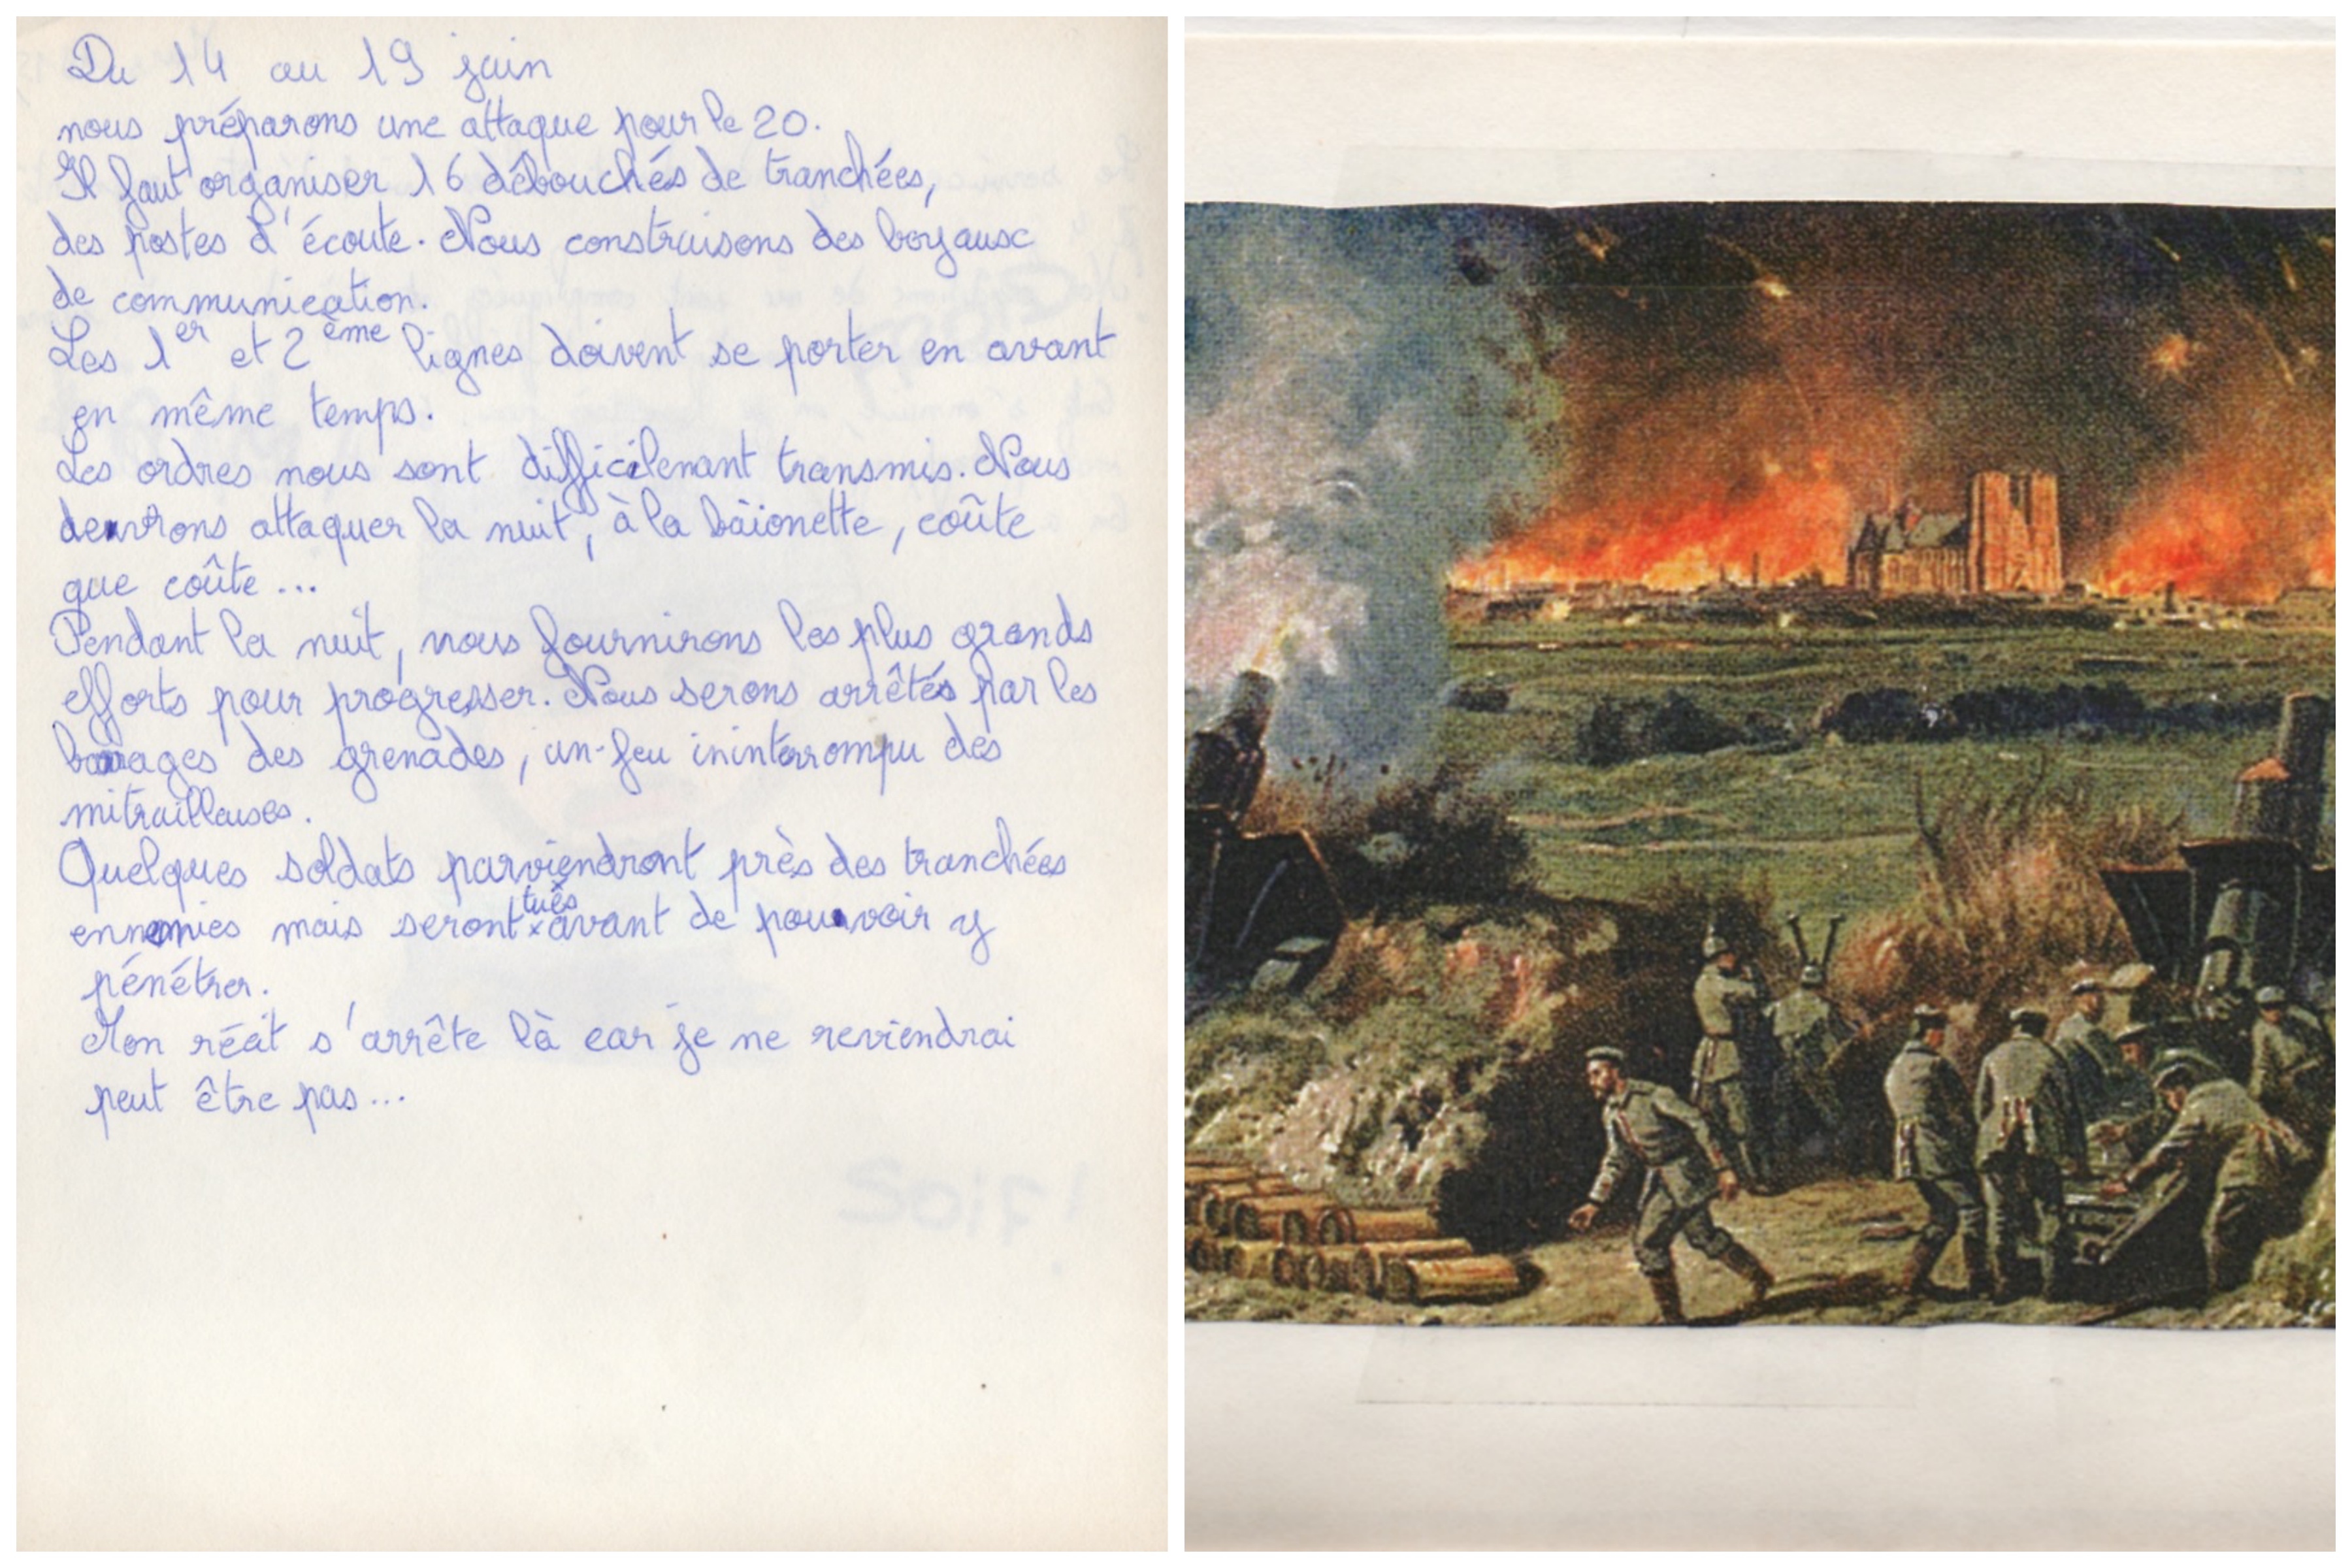 Du 14 au 19 juin
nous préparons une attaque pour le 20.
Il faut organiser 16 débouchés de tranchées,
des postes d'écoute. Nous construisons des boyaux
de communication.
Les 1er et 2ème lignes doivent se porter en avant
en même temps.
Les ordres nous sont difficilenant transmis. Nous
devrons attaquer la nuit, à la bâionette, coûte
que coûte...
Pendant la nuit, nous fournirons les plus grands
efforts pour progresser. Nous serons arrêtés par les
barrages des grenades, un feu inинterrompu des
mitrailleuses.
Quelques soldats parviendront près des tranchées
ennemies mais seront tués avant de pouvoir y
pénétrer.
Mon récit s'arrête là car je ne reviendrai
peut être pas...